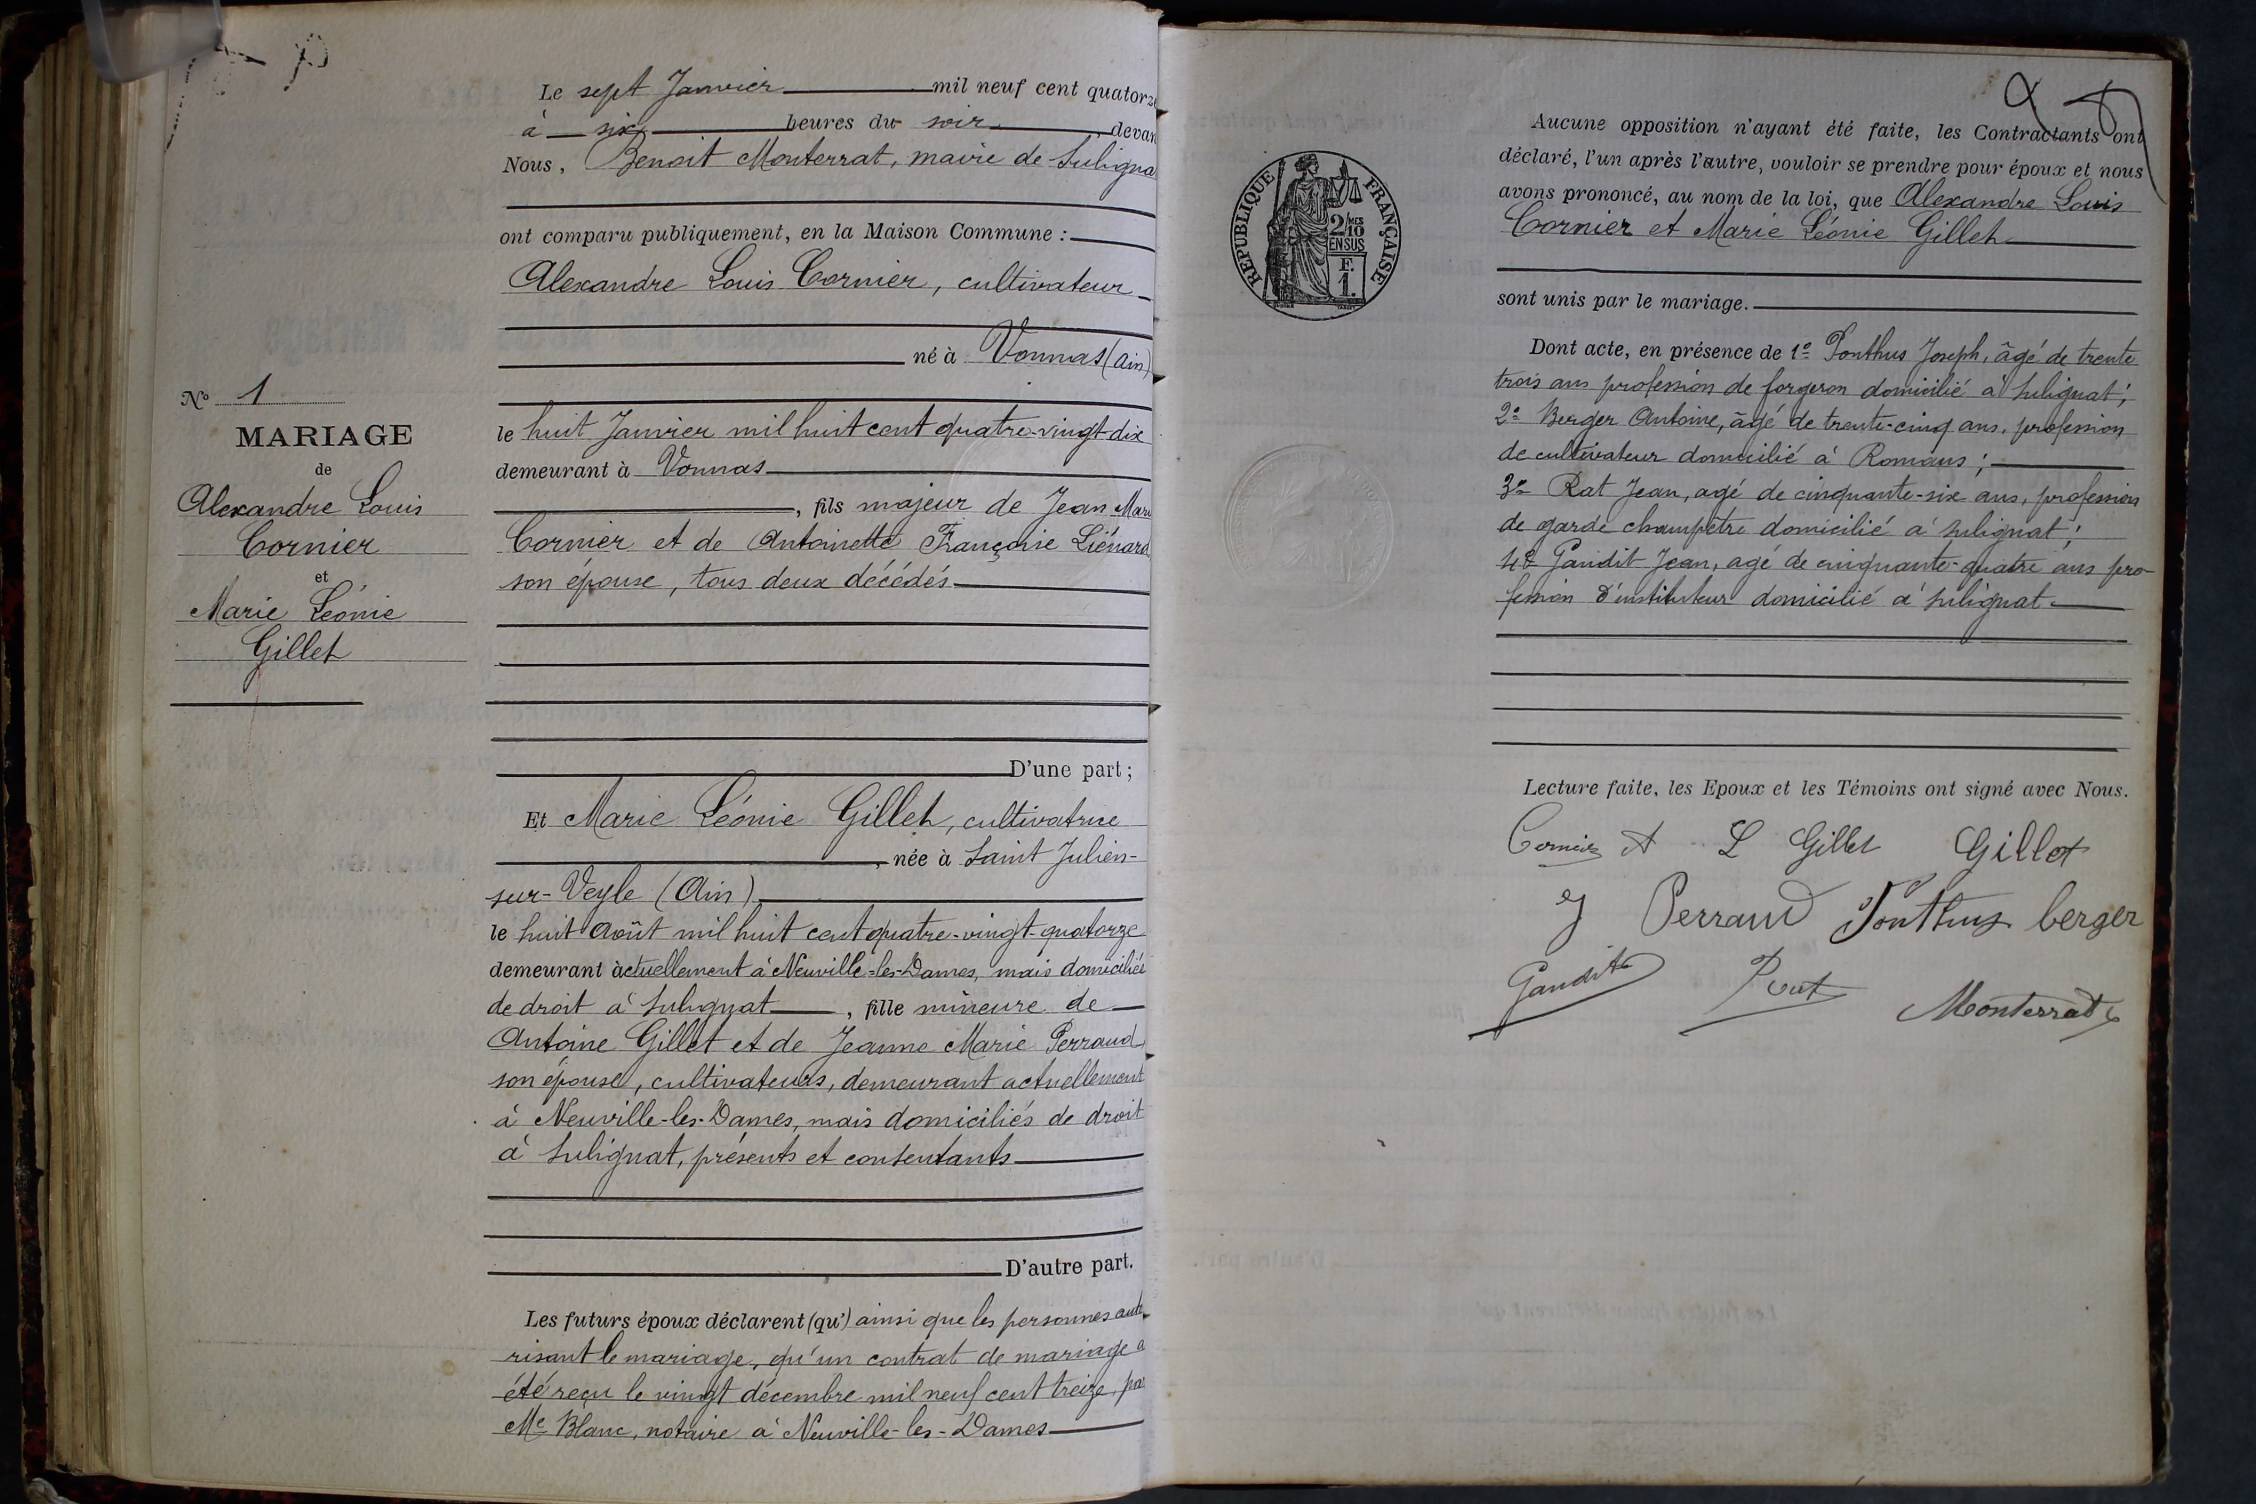 N° 1
MARIAGE
de
Alexandre Louis
Cornier
et
Marie Léonie
Gillet
Le sept Janvier mil neuf cent quatorze
à six heures du soir, devan
Nous, Benoit Monterrat, maire de Suligna
ont comparu publiquement, en la Maison Commune :
Alexandre Louis Cornier, cultivateur
né à Vonnas (Ain)
le huit Janvier mil huit cent quatre-vingt-dix
demeurant à Vonnas
, fils majeur de Jean Marie
Cornier et de Antoinette Françoise Liénard
son épouse, tous deux décédés
D'une part ;
Et Marie Léonie Gillet, cultivatrice
, née à Saint Julien-
sur-Veyle (Ain)
le huit Août mil huit cent quatre-vingt-quatorze
demeurant actuellement à Neuville-les-Dames, mais domiciliés
de droit à Sulignat, fille mineure de
Antoine Gillet et de Jeanne Marie Perraud
son épouse, cultivateurs, demeurant actuellement
à Neuville-les-Dames, mais domiciliés de droit
à Sulignat, présents et consentants
D'autre part.
Les futurs époux déclarent (qu') ainsi que les personnes auto
risant le mariage, qu'un contrat de mariage a
été reçu le vingt décembre mil neuf cent treize, par
Me Blanc, notaire à Neuville-les-Dames
RÉPUBLIQUE FRANÇAISE
2/10 MES
EN SUS
F.
1.
Aucune opposition n'ayant été faite, les Contractants ont
déclaré, l'un après l'autre, vouloir se prendre pour époux et nous
avons prononcé, au nom de la loi, que Alexandre Louis
Cornier et Marie Léonie Gillet
sont unis par le mariage.
Dont acte, en présence de 1° Ponthus Joseph, âgé de trente
trois ans profession de forgeron domicilié à Sulignat ;
2° Berger Antoine, âgé de trente-cinq ans, profession
de cultivateur domicilié à Romans ;
3° Rat Jean, agé de cinquante-six ans, profession
de garde champêtre domicilié à Sulignat ;
4° Gaudit Jean, agé de cinquante-quatre ans pro-
fession d'instituteur domicilié à Sulignat
Lecture faite, les Epoux et les Témoins ont signé avec Nous.
Cornier A L Gillet Gillet
J Perraud Ponthus berger
Gaudit Rat Monterrat